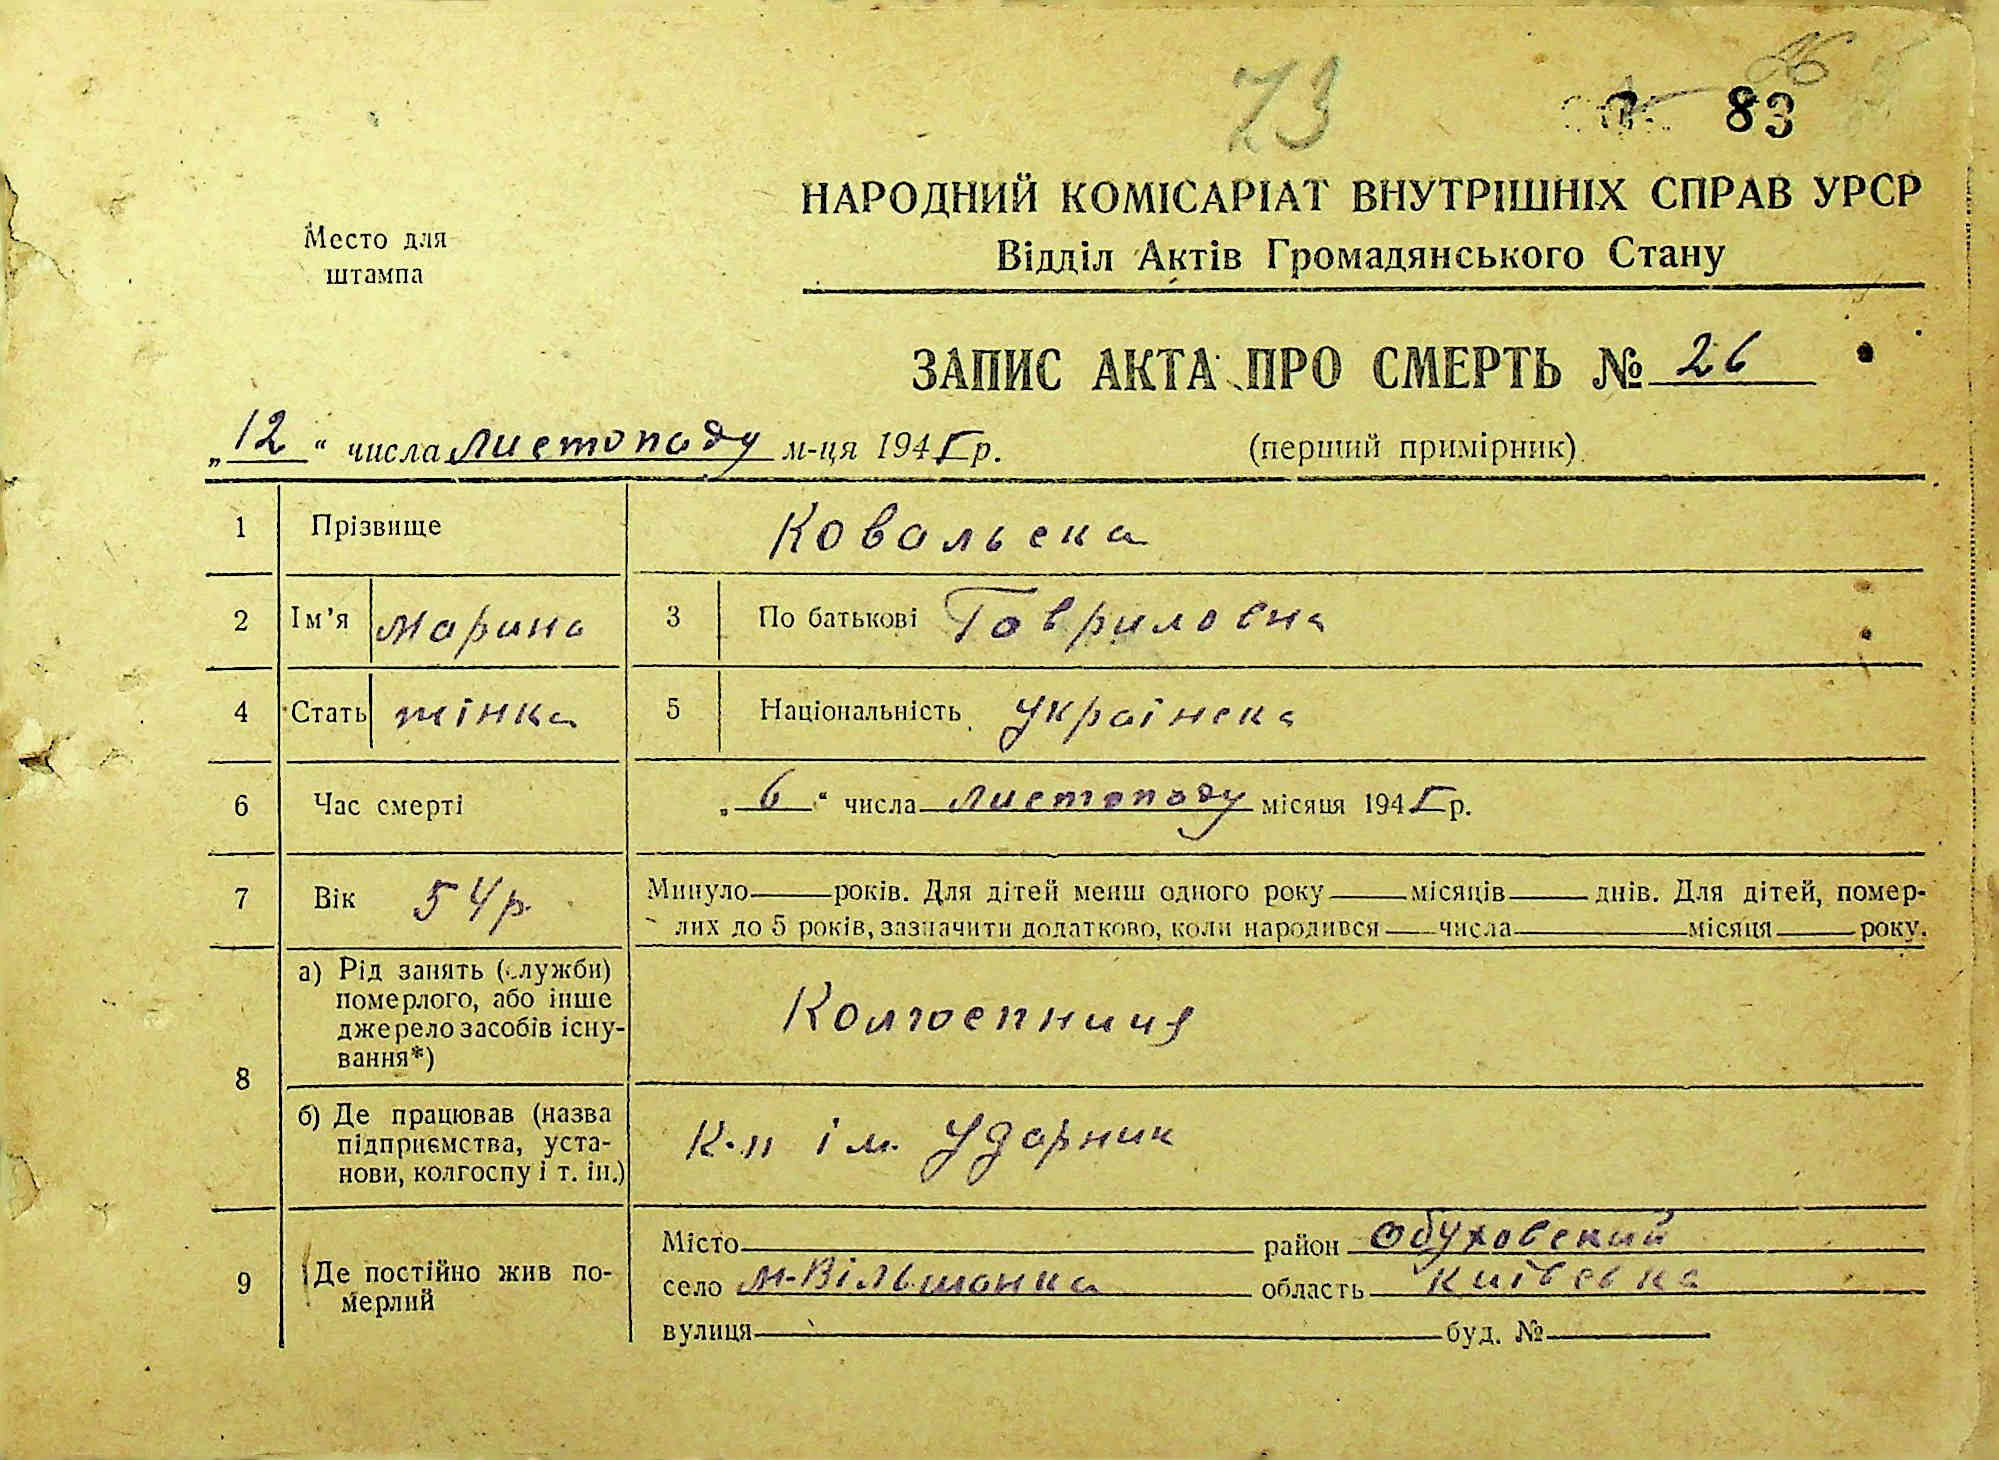 73
26
83
НАРОДНИЙ КОМІСАРІАТ ВНУТРІШНІХ СПРАВ УРСР
Место для
штампа
Відділ Актів Громадянського Стану
ЗАПИС АКТА ПРО СМЕРТЬ № 26
„12“ числа листопаду м-ця 1945 р. (перший примірник)
1 Прізвище Ковальска
2 Ім’я Марина 3 По батькові Гавриловна
4 Стать жінка 5 Національність українска
6 Час смерті „6“ числа листопаду місяця 1945 р.
7 Вік 54 р. Минуло років. Для дітей менш одного року місяців днів. Для дітей, помер-
лих до 5 років, зазначити додатково, коли народився числа місяця року.
8 а) Рід занять (служби)
померлого, або інше
джерело засобів існу-
вання*) Колгоспниця
б) Де працював (назва
підприємства, уста-
нови, колгоспу і т. ін.) К-п ім. Ударник
9 Де постійно жив по-
мерлий
Місто район Обуховский
село М-Вільшанка область Київська
вулиця буд. №